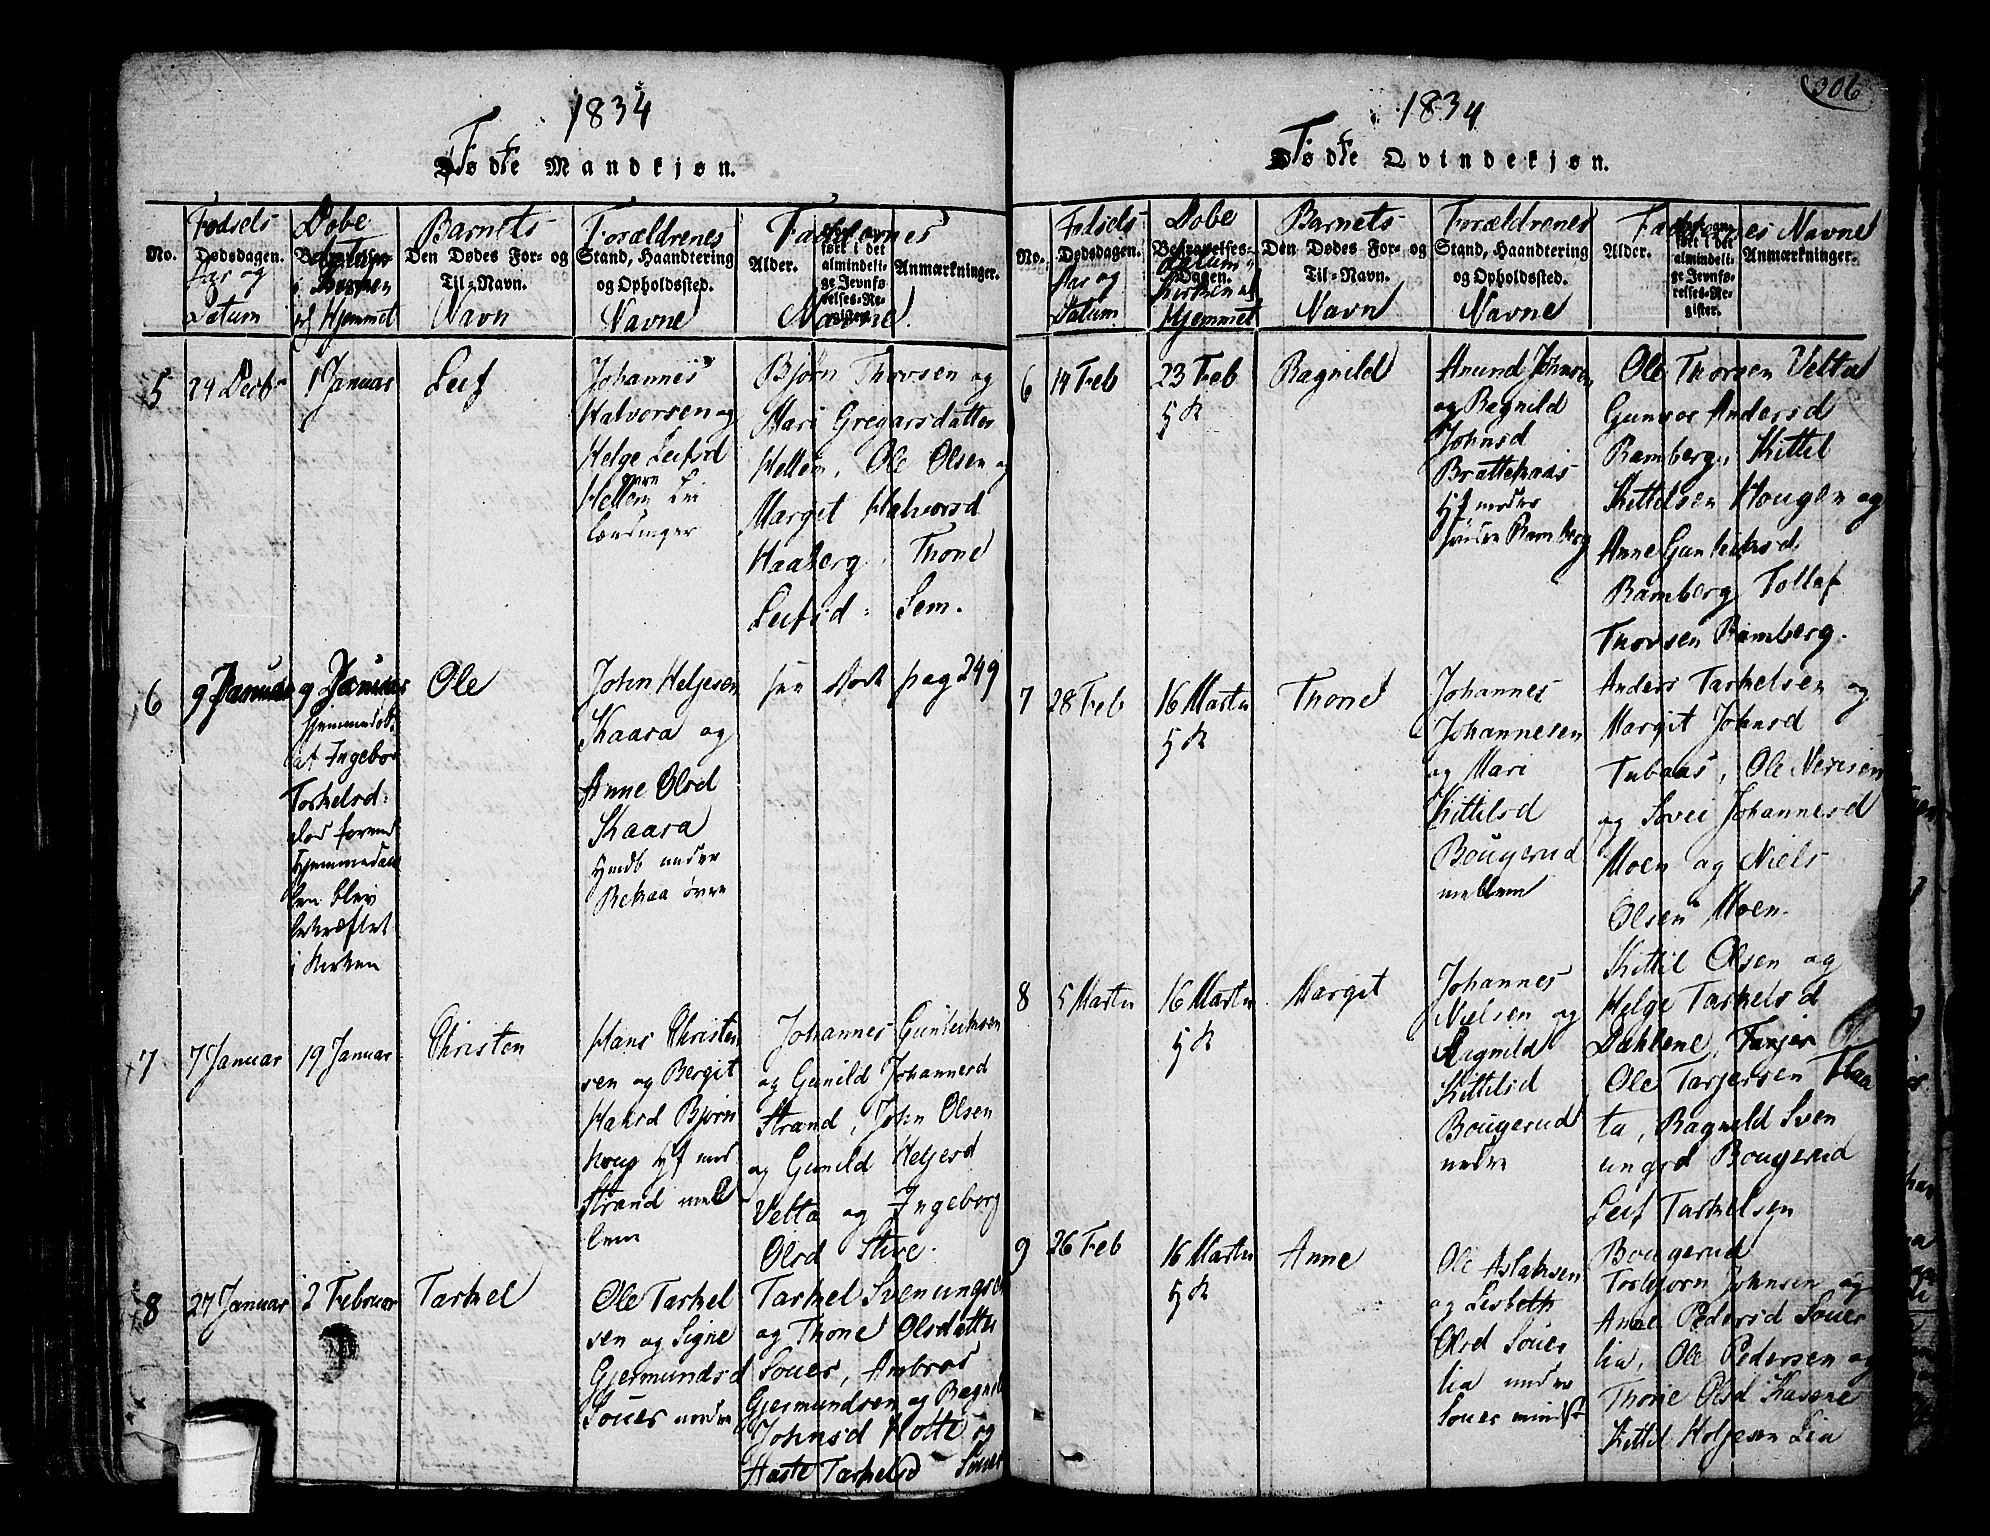 1834
Fødte Mandkjøn.
No.
Fødsels
Dødsdagen.
Aar og
Datum
Døbe
Datum
i Kirken
og Hjemmet
Barnets
Den Dødes For- og
Til-Navn.
Navn
Forældrenes
Stand, Haandtering
og Opholdssted.
Navne
Faddernes
Alder.
ført i det
almindeli-
ge Jevnfø-
relses-Re-
gister.
Anmærkninger.
Navne
5
24 Decbr
1 Januar
Leif
Johannes
Halvorsen og
Helge Leifsd
Hellom
Bjørn Thovsen og
Mari Gregarsdatter
Hellom, Ole Olsen og
Margit Halvorsd
Haaberg, Thone
Leifsd Sem.
6
9 Januar
9 Januar
Hjemmedøbt
af Ingebor
Torkelsd:
Hjemmedaa
ben blev
bekræftet
i Kirken
Ole
John Heljesen
Kaara og
Anne Olsd
Kaara
under
Bekaa øvre
see Dode pag 249
7
7 Januar
19 Januar
Christen
Hans Christen
sen og Bergit
Haard Bjørn
houg Hf und
Strand mel
lem
Johannes Gunleiksen
og Gunild Johannesd
Strand, John Olsen
og Gunild Heljesd
Velta og Ingeborg
Olsd Stive.
8
27 Januar
2 Februar
Tarkel
Ole Tarkel
sen og Signe
Gjermundsd
Souer nordre
Tarkel Svenungsen
og Thone Olsdatter
Souer, Ambros
Gjermundsen og Ragnil
Johnsd Holte og
Haste Tarkelsd Souer
306
1834
Fødte Qvindekjøn.
No.
Fødsels
Dødsdagen.
Aar og
Datum
Døbe
Begravelses-
Dagen.
Datum i
Kirken og
Hjemmet
Barnets
Den Dødes For- og
Til-Navn.
Navn
Forældrenes
Stand, Haandtering
og Opholdssted.
Navne
Faddernes Navne
Alder.
ført i det
almindeli-
ge Jevnfø-
relses-Re-
gister.
Anmærkninger.
6
14 Feb
23 Feb
5 K
Ragnild
Anund Johnsen
og Ragnild
Johnsd
Brattekaas
Hf under
søndre Ramberg
Ole Thorsen Velta
Gunvor Andersd
Ramberg, Kittil
Kittilsen Hougen og
Anne Gunleiksd
Ramberg Tollef
Thovsen Ramberg.
7
28 Feb
16 Marts
5 K
Thone
Johannes
Johannesen
og Mari
Kittilsd
Bougerud
mellem
Anders Tarkelsen og
Margit Johnsd
Tubaas, Ole Nerisen
og Sovei Johannesd
Moen og Niels
Olsen Moen.
8
5 Marts
16 Marts
5 K
Margit
Johannes
Nielsen og
Ragnild
Kittilsd
Bougerud
nedre
Kittil Olsen og
Helge Tarkelsd
Dahlene, Tarjer
Ole Tarjersen Flaa
ta, Ragnild Sven
ungsd Bougerud
Leif Tarkelsen
Bougerud
9
26 Feb
16 Marts
5 K
Anne
Ole Aslaksen
og Lisbeth
Olsd Souer
lia under
Souer mindst
Torbjørn Johnsen og
Anne Pedersd Souer
lia, Ole Pedersen og
Thone Olsd Kasene
Kittil Holjesen Lia